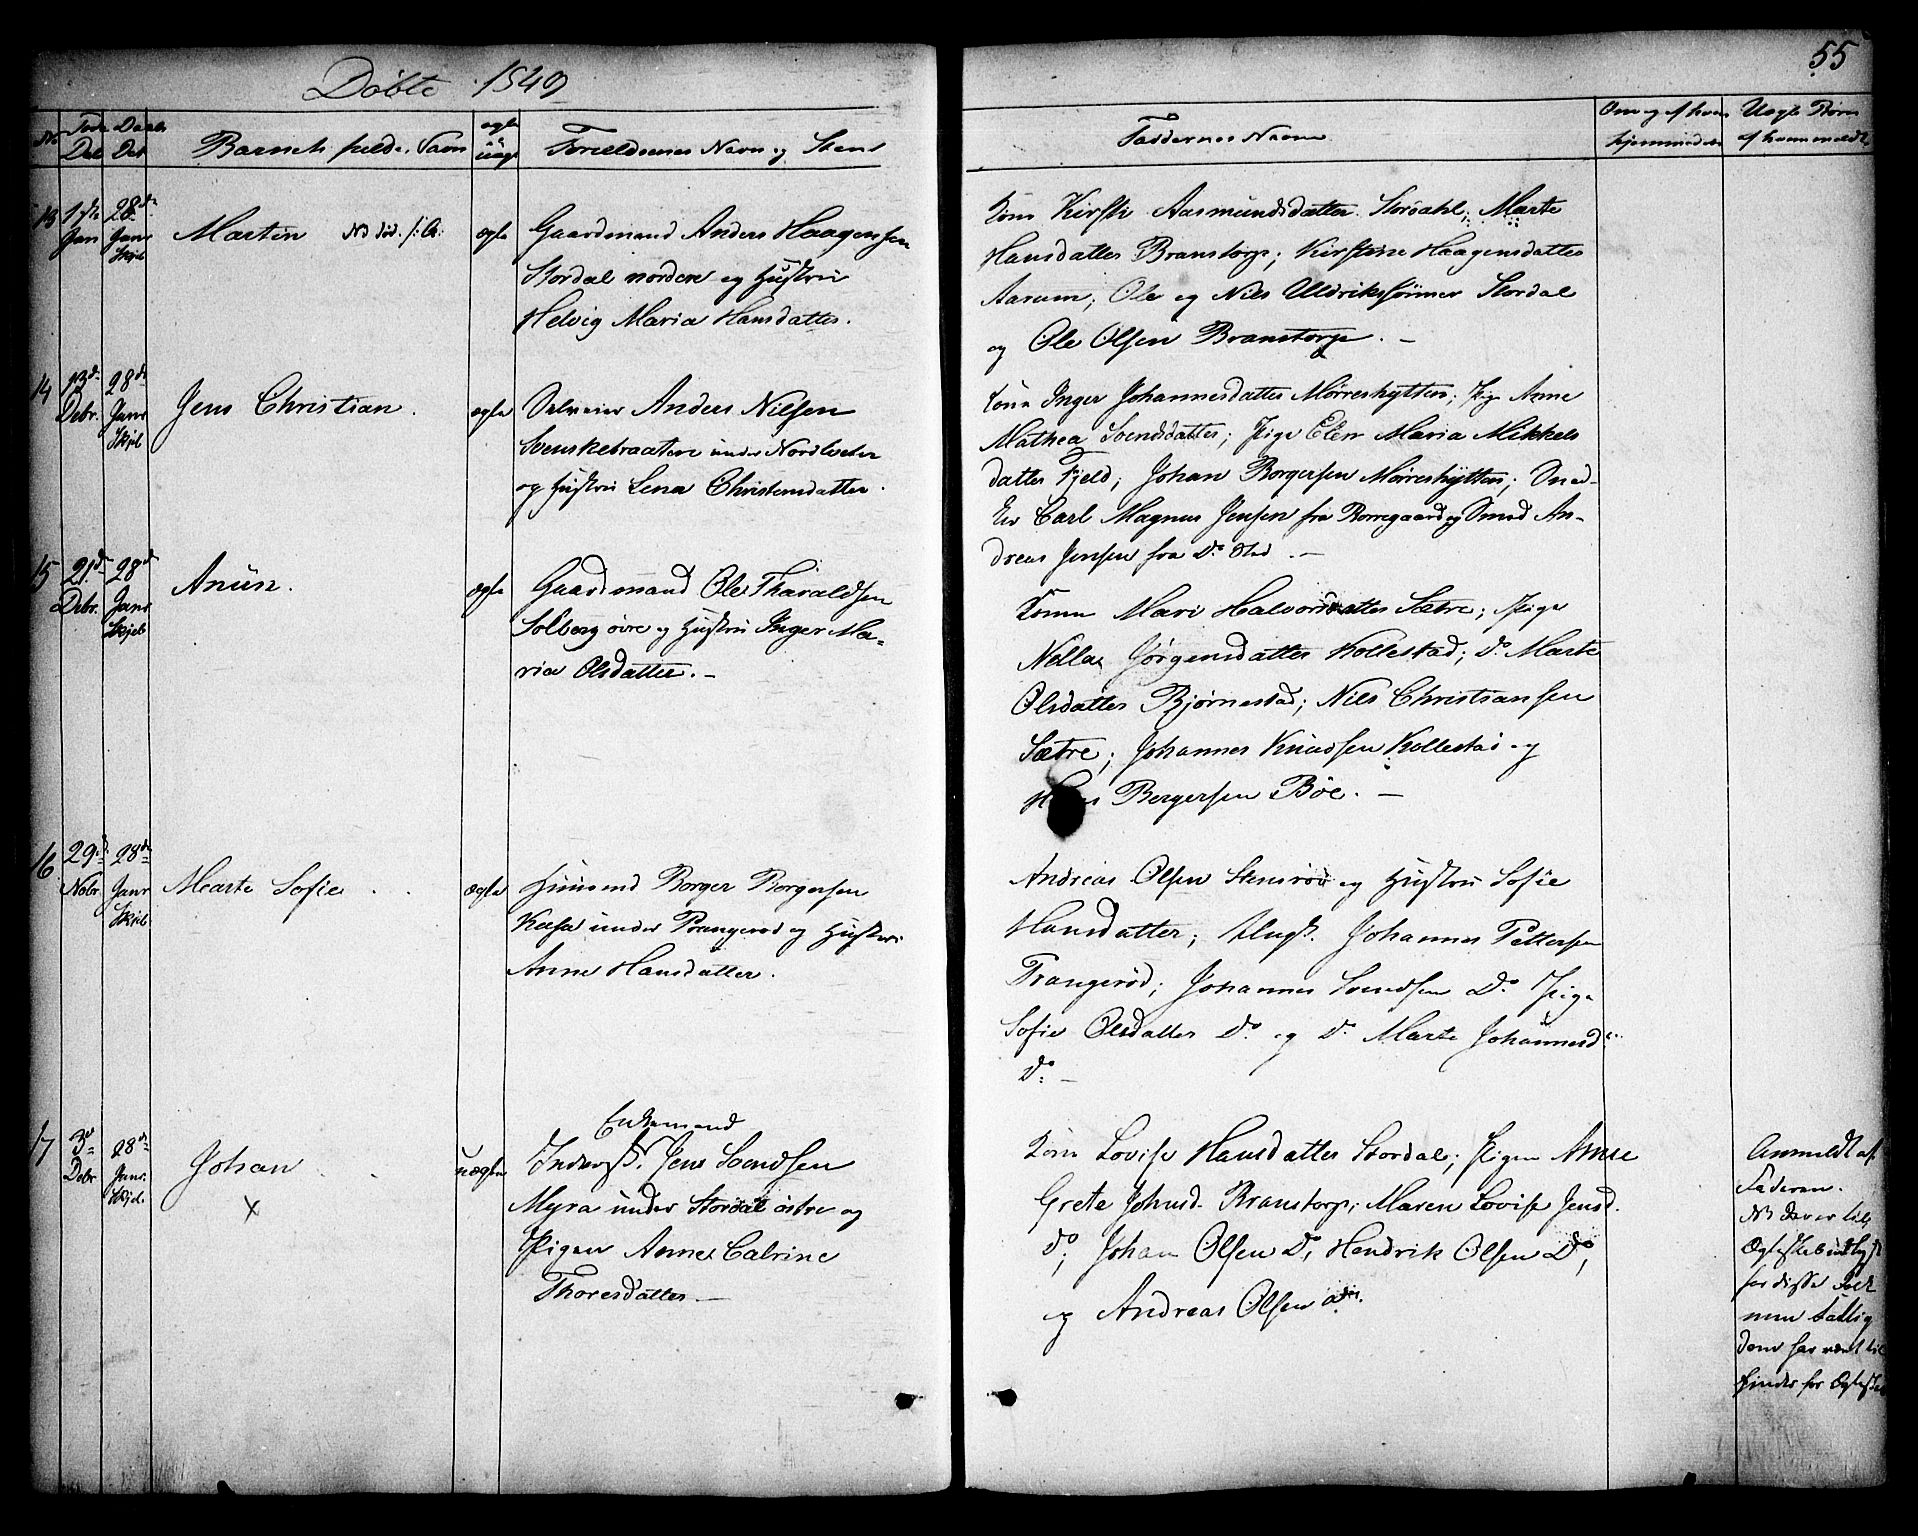 55
Döbte 1849
No
Föds. Dat.
Daabs Dat.
Barnets fulde Navn
ægte uægt
Forældrenes Navn og Stand
Faddernes Navn
Om og af hvem hjemmedøbt
Uægte Børn af hvem meldt
13
17de Jan
28de Janr Skjeb
Martin NB död
ægte
Gaardmand Anders Haagensen
Stordal nordre og Hustru
Helvig Maria Hansdatter.
Kone Kirsti Aasmundsdatter Stordahl; Marte
Hansdatter Branstorp; Kirstine Haagensdatter
Aarum; Ole og Nils Uldrikssönner Stordal
og Ole Olsen Branstorp. –
14
13de Debr.
28de Janr Skjeb
Jens Christian.
ægte
Anders Nilsen
Svenskebraaten under Nordleeter
og Hustru Lena Christensdatter.
Kone Inger Johannesdatter Mörreshytten; Pige Anne
Mathea Svendsdatter; Pige Elen Maria Mikkels
datter Fjeld; Johan Borgersen Mörreshytten; Smed
Carl Magnus Jensen fra Borregaard og Smed An-
dreas Jensen fra Do Sted. –
15
21de Debr.
28de Janr Skjeb
Anün.
ægte
Gaardmand Ole Tharaldsen
Solberg övre og Hustru Inger Ma-
ria Olsdatter. –
Kone Mari Halvorsdatter Sætre; Pige
Nella Jörgensdatter Kollestad; Do Marte
Olsdatter Björnestad; Nils Christiansen
Sætre; Johannes Knudsen Kollestad og
Hans Bergersen Böe. –
16
29de Nobr.
28de Janr Skjeb
Marte Sofie
ægte
Huusmd Borger Borgersen
Kasa under Prangeröd og Hustru
Anne Hansdatter.
Andreas Olsen Stensröd og Hustru Sofie
Hansdatter; Ungk. Johannes Pettersen
Prangeröd; Johannes Svendsen Do Pige
Sofie Olsdatter Do og Do Marte Johannesd.
Do –
17
3de Debr
28de Janr. Skjeb.
Johan
x
uægte
Enkemand
Inderst. Jens Svendsen
Myra under Stordal östre og
Pigen Anne Catrine
Thoresdatter –
Kone Lovise Hansdatter Stordal; Pigen Anne
Grete Johnsd. Branstorp; Maren Lovise Jensd.
Do; Johan Olsen Do, Hendrik Olsen Do,
og Andreas Olsen ads.
Anmeldt af
Faderen.
NB Der er til
Ægteskab indlyst
for disse Folk
men Fattig
dom har været til
Hinder for Ægtesk.